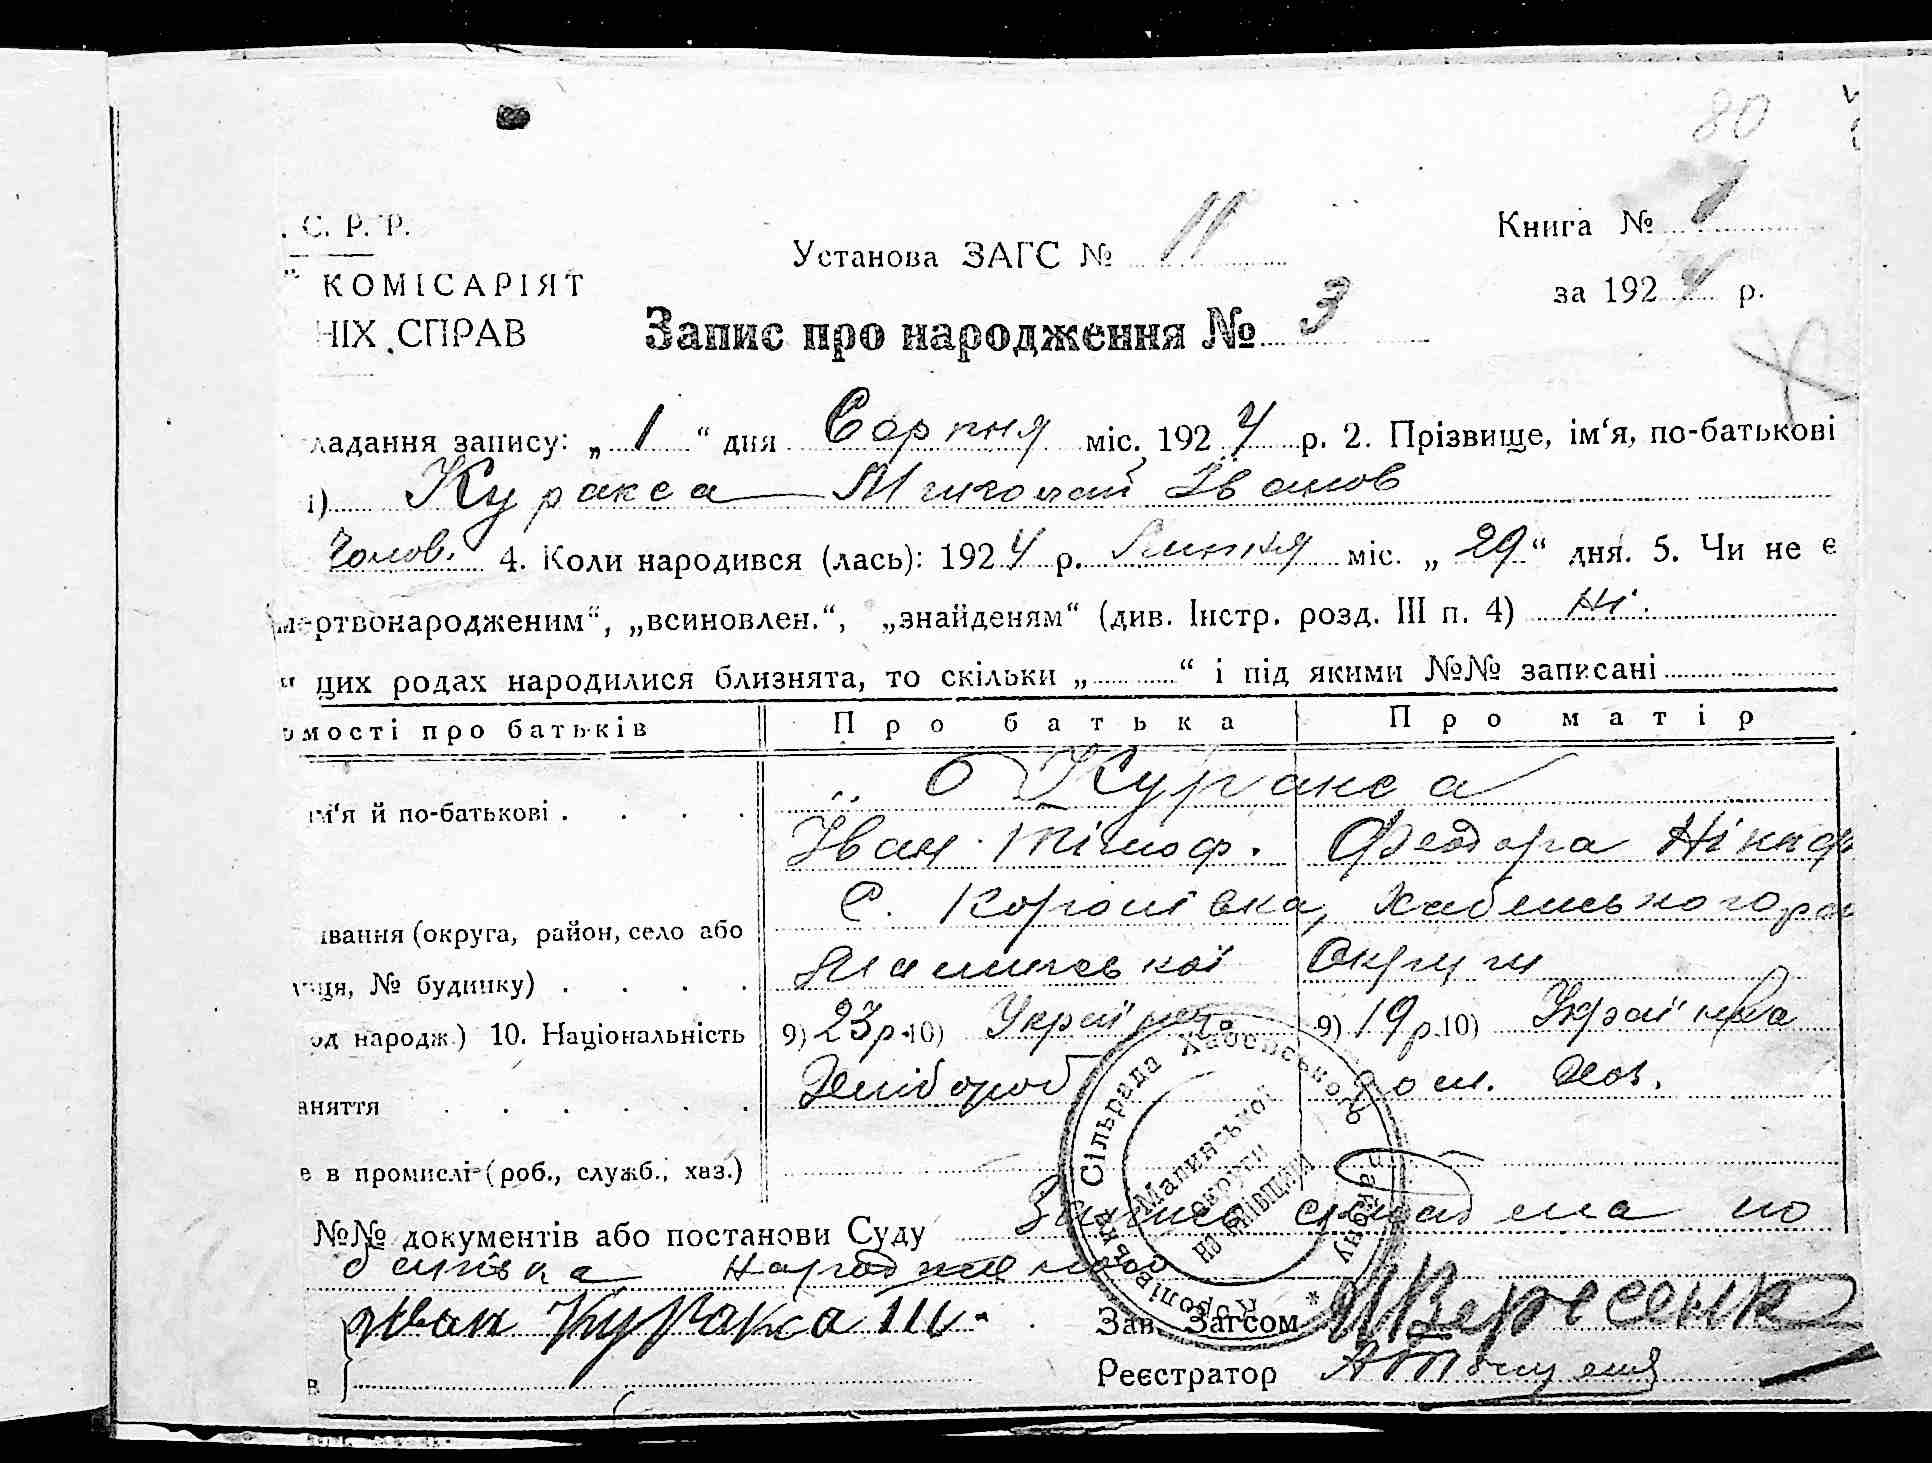 80
. С. Р. Р.
Установа ЗАГС № 11
Книга № 1
КОМІСАРІЯТ
за 1924 р.
НІХ СПРАВ
Запис про народження № 3
ладання запису: „ 1 “ дня Серпня міс. 1924 р. 2. Прізвище, ім‘я, по-батькові
і) Куракса Миколай Іванов
Чолов. 4. Коли народився (лась): 1924 р. Липня міс. „ 29 “ дня. 5. Чи не є
мертвонародженим“, „всиновлен.“, „знайденям“ (див. Інстр. розд. III п. 4) Ні.
цих родах народилися близнята, то скільки „ “ і під якими №№ записані
омості про батьків Про батька Про матір
Куракса
ім‘я й по-батькові . . . .
Іван Тімоф. Феодора Нікиф
с. Королівка, Хабенського рай
івання (округа, район, село або
Малинської Округи
иця, № будинку) . . . .
од народж.) 10. Національність 9) 23 р. 10) Українец 9) 19 р. 10) Українка
аняття . . . . . . Хлібороб Дом. Хоз.
е в промислі (роб., служб., хаз.)
№№ документів або постанови Суду Запись складена по
народження
Іван Куракса Ш.
Зав. Загсом
в
Реєстратор
Королівська Сільрада Хабенського району *
Малинської
округи
на Київщині